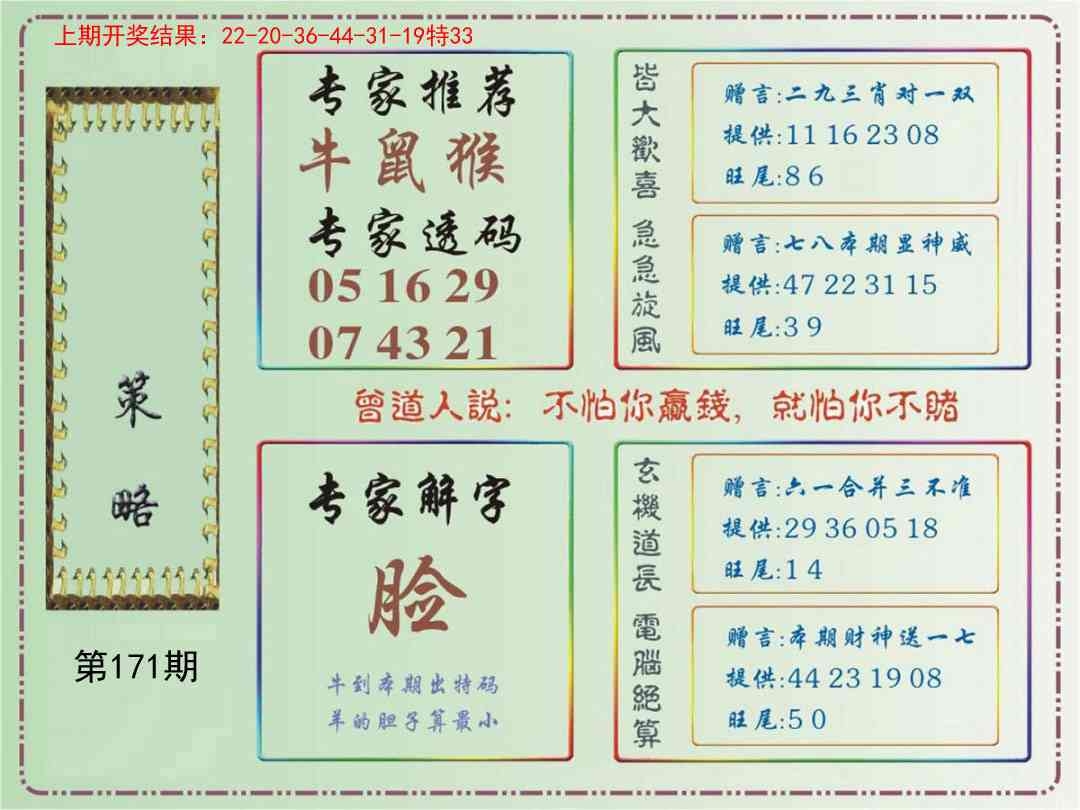 上期开奖结果：22-20-36-44-31-19特33
策略
第171期
专家推荐
牛鼠猴
专家透码
05 16 29
07 43 21
皆大歡喜
赠言:二九三肖对一双
提供:11 16 23 08
旺尾:8 6
急急旋風
赠言:七八本期显神威
提供:47 22 31 15
旺尾:3 9
曾道人説：不怕你贏錢，就怕你不賭
专家解字
脸
牛到本期出特码
羊的胆子算最小
玄機道長
赠言:六一合并三不准
提供:29 36 05 18
旺尾:1 4
電腦絕算
赠言:本期财神送一七
提供:44 23 19 08
旺尾:5 0